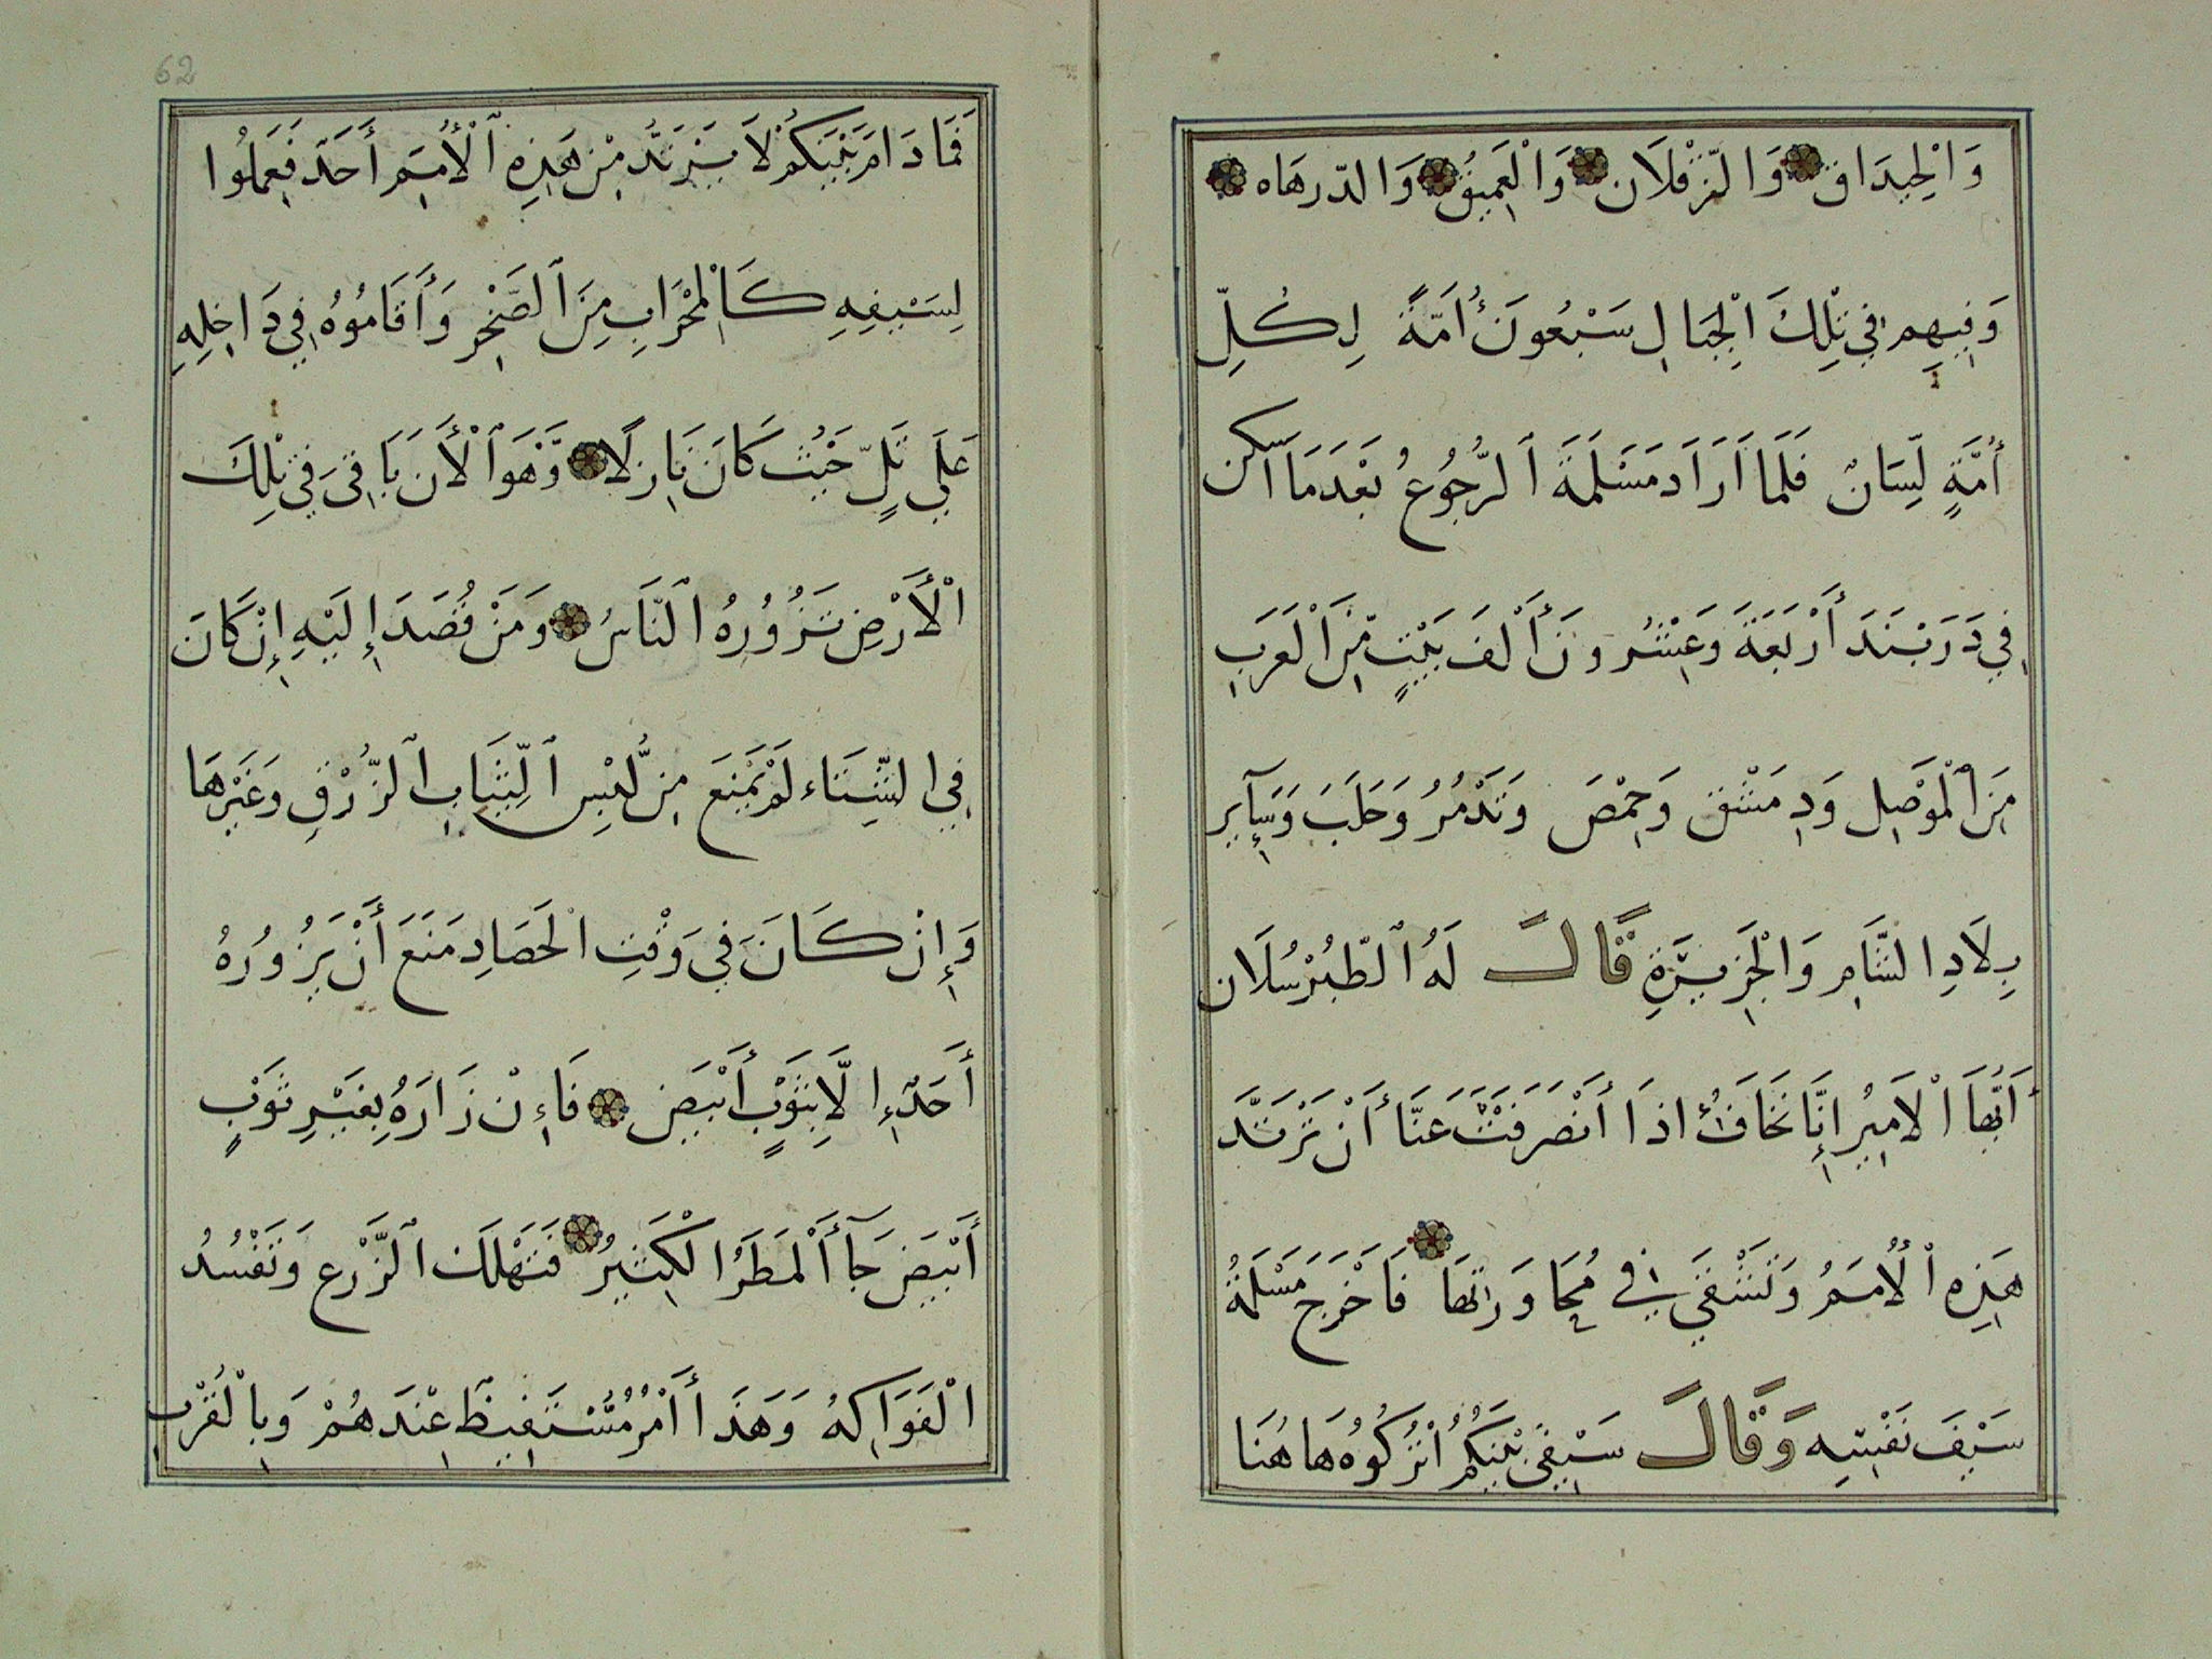 وَالْخِيدَاقِ وَالزّقْلَان وَالْعَمِيقُ وَالدّرهَاه
وَفِيهِم فِي تِلْكَ الْجِبَالِ سَبْعُونَ أُمَّةً لِكُلِّ
أُمَّةٍ لِّسَانٌ فَلَمَّا أَرَادَ مَسْلَمَةَ ٱلرُّجُوعُ بَعْدَمَا اَسْكن
فِي دَرَبَنَدَ أَرْبَعَةَ وَعِشْرُونَ أَلْفَ بَيْتٍ مِّنَ الْعَرَبِ
مِنَ ٱلْمَوْصِلِ وَدِمَشْقَ وَحِمْصَ وَتَدْمُرُ وَحَلَبَ وَسَآئِرِ
بِلَادِ الشَّامِ وَالْجَزِيرَةِ قَالَ لَهُ ٱلطّبُرْسُلَان
أَيُّهَا الْاَمِيرُ إِنَّا نَخَافُ اذَا أَنْصَرَفْتَ عَنَّا أَنْ تَرْتَدَّ
هَذِهِ الْأُمَمُ وَنَشْقَى فِي مُجَاوَرَاتِهَا فَاَخْرَجَ مَسْلَمَةُ
سَيْفَ نَفْسِهِ وَقَالَ سَيْفِي بَيْنَكُمْ أُتْرُكُوُهُ هَا هُنَا
فَمَا دَامَ بَيْنَكُمْ لَا يَرْتَدُّ مِنْ هَذِهِ ٱلْأُمَمِ أَحَدٌ فَعَمِلُوا
لِسَيْفِهِ كَالْمِحْرَابِ مِنَ ٱلصَّخْرِ وَأَقَامُوهُ فِي دَاخِلِهِ
عَلَي تَلٍّ حَيْثُ كَانَ نَازِلًا وَّهُوَ ٱلْأَنَ بَاقِىَ فِي تِلْكَ
الْأَرْضِ تَزُورُهُ ٱلنَّاسُ وَمَنْ قُصَدَ إِلَيْهِ إِنْ كَانَ
فِي الشِّتَاء لَمْ يَمْنَعَ مِن لُّبْسِ ٱلثِّيَابِ ٱلزُّرْقِ وَغَيْرِهَا
وَإِنْ كَانَ فِي وَقْتِ الْحَصَادِ مَنَعَ أَنْ يَزُورُهُ
أَحَدٌ إِلَّا بِثَوْبٍ أَبْيَضِ فَاءِنْ زَارَهُ بِغَيْرِ ثَوْبٍ
أَبْيَضِ جَآأَ الْمَطَرُ الْكَثِيرُ فَتَهْلَكَ ٱلزَّرْعِ وَتَفْسُدُ
الْفَوَاكِهُ وَهَذَا أَمْرٌ مُّسْتَفِيظٌ عِنْدَهُمْ وَبِالْقُرْبِ
62